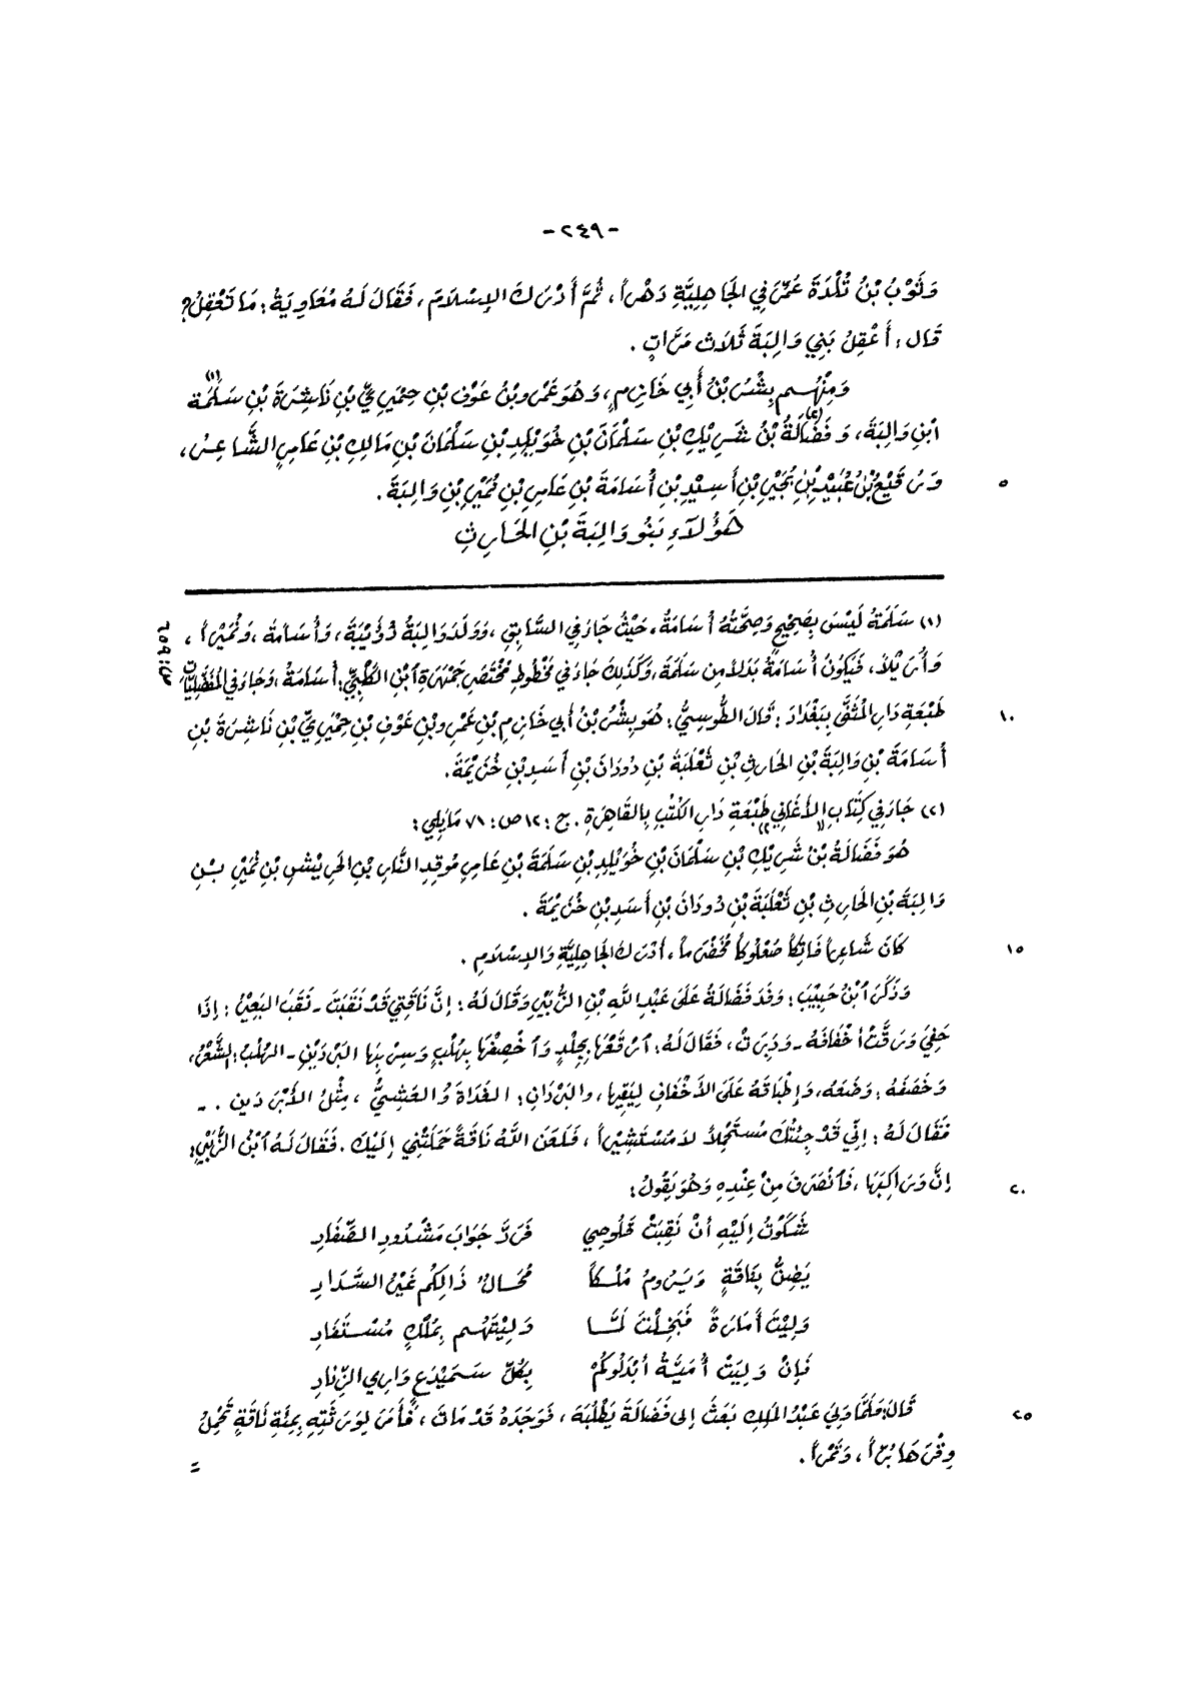 -٢٤٩-
وَثَوْبُ بْنُ تُلْدَةَ عُمِّرَ فِي الجَاهِلِيَّةِ دَهْراً، ثُمَّ أَدْرَكَ الإِسْلَامَ، فَقَالَ لَهُ مُعَاوِيَةُ: مَا تَعْقِلُ؟
قَالَ: أَعْقِلُ بَنِي وَالِبَةَ ثَلَاثَ مَرَّاتٍ.
وَمِنْهُم بِشْرُ بْنُ أَبِي خَازِمٍ، وَهُوَ عَمْرُو بْنُ عَوْفِ بْنِ حِمْيَرِيِّ بْنِ نَاشِرَةَ بْنِ سَلَمَةَ (١)
ابْنِ وَالِبَةَ، وَفَضَالَةُ (٢) بْنُ شَرِيْكِ بْنِ سَلْمَانَ بْنِ خُوَيْلِدِ بْنِ سَلْمَانَ بْنِ مَالِكِ بْنِ عَامِرٍ الشَّاعِرُ،
وَرُقَيْعُ بْنُ عُبَيْدِ بْنِ بُجَيْرِ بْنِ أَسِيْدِ بْنِ أُسَامَةَ بْنِ عَامِرِ بْنِ نُمَيْرِ بْنِ وَالِبَةَ.
٥
هَؤُلَاَءِ بَنُو وَالِبَةَ بْنِ الحَارِثِ
(١) سَلَمَةُ لَيْسَ بِصَحِيْحٍ وَصِحَّتُهُ أُسَامَةُ، حَيْثُ جَاءَ فِي السَّابِقِ، وَوَلَدَ وَالِبَةُ ذُؤَيْبَةَ، وَأُسَامَةَ، وَنُمَيْراً،
وَأُرَيْلاً، فَيَكُونُ أُسَامَةُ بَدَلاً مِن سَلَمَةَ، وَكَذَلِكَ جَاءَ فِي مَخْطُوطِ مُخْتَصَرِ جَمْهَرَةِ ابْنِ الكَلْبِيِّ: أُسَامَةُ، وَجَاءَ فِي المُفَضَّلِيَّاتِ
ص: ٦٥٩
طَبْعَةِ دَارِ المُثَنَّى بِبَغْدَادَ: قَالَ الطُّوسِيُّ: هُوَ بِشْرُ بْنُ أَبِي خَازِمِ بْنِ عَمْرِو بْنِ عَوْفِ بْنِ حِمْيَرِيِّ بْنِ نَاشِرَةَ بْنِ
١٠
أُسَامَةَ بْنِ وَالِبَةَ بْنِ الحَارِثِ بْنِ ثَعْلَبَةَ بْنِ دُودَانَ بْنِ أَسَدِ بْنِ خُزَيْمَةَ.
(٢) جَاءَ فِي كِتَابِ الأَغَانِي طَبْعَةِ دَارِ الكُتُبِ بِالقَاهِرَةِ. ج: ١٢ ص: ٧١ مَايَلِي:
هُوَ فَضَالَةُ بْنُ شَرِيْكِ بْنِ سَلْمَانَ بْنِ خُوَيْلِدِ بْنِ سَلَمَةَ بْنِ عَامِرٍ مُوقِدِ النَّارِ بْنِ الحَرِيْشِ بْنِ نُمَيْرِ بْنِ
وَالِبَةَ بْنِ الحَارِثِ بْنِ ثَعْلَبَةَ بْنِ دُودَانَ بْنِ أَسَدِ بْنِ خُزَيْمَةَ.
كَانَ شَاعِراً فَاتِكاً صُعْلُوكاً مُخَضْرَماً، أَدْرَكَ الجَاهِلِيَّةَ وَالإِسْلَامَ.
١٥
وَذَكَرَ ابْنُ حَبِيْبَ: وَفَدَ فَضَالَةُ عَلَى عَبْدِ اللَّهِ بْنِ الزُّبَيْرِ وَقَالَ لَهُ: إِنَّ نَاقَتِي قَدْ نَقِبَتْ - نَقِبَ البَعِيْرُ: إِذَا
حَفِيَ وَرَقَّتْ أَخْفَافَهُ - وَدَبِرَتْ، فَقَالَ لَهُ: ارْقَعْهَا بِجِلْدٍ وَاخْصِفْهَا بِهُلْبٍ وَسِرْ بِهَا البَرْدَيْنِ - الهُلْبُ: الشَّعْرُ،
وَخَصَفَهُ: وَضَعَهُ، وَإِطْبَاقَهُ عَلَى الأَخْفَافِ لِيَقِيَهَا، وَالبَرْدَانِ: الغَدَاةُ وَالعَشِيُّ، مِثْلُ الأَبْرَدَيْنِ. -
فَقَالَ لَهُ: إِنِّي قَدْ جِئْتُكَ مُسْتَحْمِلاً لاَ مُسْتَشِيْراً، فَلَعَنَ اللَّهُ نَاقَةً حَمَلَتْنِي إِلَيْكَ. فَقَالَ لَهُ ابْنُ الزُّبَيْرِ:
إِنَّ وَرَاكِبَهَا، فَانْصَرَفَ مِنْ عِنْدِهِ وَهُوَ يَقُولُ:
٢٠
شَكَوْتُ إِلَيْهِ أَنْ نَقِبَتْ قَلُوصِي فَرَدَّ جَوَابَ مَشْدُودِ الصِّفَادِ
يَضِنُّ بِنَاقَةٍ وَيَرُومُ مُلْكاً مُحَالٌ ذَالِكُم غَيْرُ السَّدَادِ
وَلِيْتَ أَمَارَةً فَبَخِلْتَ لَمَّا وَلِيْتَهُم بِمُلْكٍ مُسْتَفَادِ
فَإِنْ وَلِيَتْ أُمَيَّةُ أَبْدَلُوكُمْ بِكُلِّ سَمَيْدَعٍ وَارِي الزِّنَادِ
قَالَ: فَلَمَّا وَلِيَ عَبْدُ المَلِكِ بَعَثَ إِلَى فَضَالَةَ يَطْلُبَهُ، فَوَجَدَهُ قَدْ مَاتَ، فَأَمَرَ لِوَرَثَتِهِ بِمِئَةِ نَاقَةٍ تَحْمِلُ
٢٥
وِقْرَهَا بُرّاً، وَتَمْراً.
=